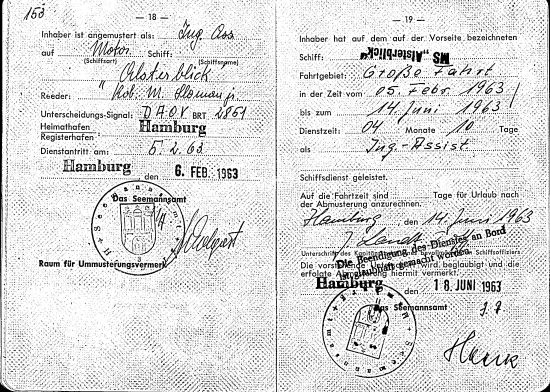 153
— 18 —
Inhaber ist angemustert als: Ing. Ass
auf Motor Schiff:
(Schiffsort) (Schiffsname)
"Alsterblick"
Reeder: Rob. M.
Unterscheidungs-Signal: DAOV BRT 2851
Heimathafen
Registerhafen Hamburg
Dienstantritt am: 5.2.63
Hamburg, den 6. FEB. 1963
Das Seemannsamt
Seemannsamt
Raum für Ummusterungsvermerk
— 19 —
Inhaber hat auf dem auf der Vorseite bezeichneten
Schiff: MS „Alsterblick"
Fahrtgebiet: Große Fahrt
in der Zeit vom 05. Febr. 1963
bis zum 14. Juni 1963
Dienstzeit: 04 Monate 10 Tage
als Ing.-Assist.
Schiffsdienst geleistet.
Auf die Fahrtzeit sind Tage für Urlaub nach
der Abmusterung anzurechnen.
Hamburg, den 14. Juni 1963
Die Beendigung des Dienstes an Bord
ist glaubhaft gemacht worden.
Unterschrift des Schiffsoffiziers
Die vorstehende beglaubigt und die
erfolgte Abmusterung hiermit vermerkt.
Hamburg, den 18. JUNI 1963
Das Seemannsamt
Seemannsamt